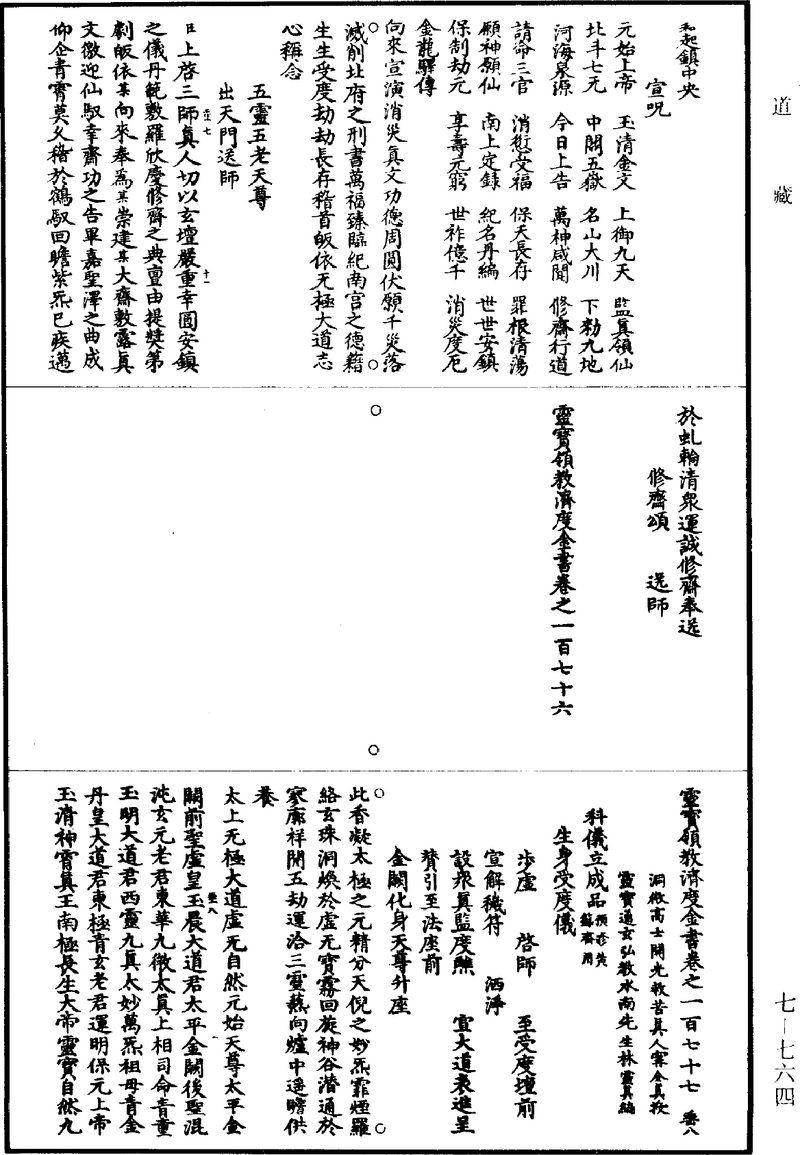 道藏
七—七六四
和起鎮中央
宣呪
元始上帝　玉清金文　上御九天　監真領仙
北斗七元　中開五嶽　名山大川　下勑九地
河海泉源　今日上告　萬神咸聞　修齋行道
請命三官　消愆受福　保天長存　罪根清蕩
願神願仙　南上定錄　紀名丹編　世世安鎮
保制劫元　享壽无窮　世祚億千　消災度厄
金龍驛傳
向來宣演消災真文功德周圓伏願千災落
滅削北府之刑書萬福臻臨紀南宮之德籍
生生受度劫劫長存稽首皈依无極大道志
心稱念
五靈五老天尊
出天門送師
臣上啓三師真人切以玄壇嚴重幸圓安鎮
之儀丹範敷羅欣度修齋之典亶由提獎第
劇皈依某向來奉為某崇建某大齋敷露真
文徼迎仙馭幸齋功之告畢嘉聖澤之曲成
仰企青霄莫久稽於鶴馭回瞻紫炁已疾邁
於虬輪清衆運誠修齋奉送
修齋頌　送師
靈寶領教濟度金書卷之一百七十六
靈寶領教濟度金書卷之一百七十七
洞微高士開光救苦真人甯全真授
靈寶通玄弘教水南先生林靈真編
科儀立成品
生身受度儀
步虛　啓師　至受度壇前
宣解穢符　洒淨
設衆真監度醮　宣大道表進呈
贊引至法座前
金闕化身天尊升座
此香凝太極之元精分天倪之妙炁霏煙羅
絡玄珠洞煥於虛无寶霧回旋神谷潛通於
寥廓祥開五劫運洽三靈爇向爐中遥瞻供
養
太上无極大道虛无自然元始天尊太平金
闕前聖虛皇玉晨大道君太平金闕後聖混
沌玄元老君東華九微太真上相司命青童
玉明大道君西靈九真太妙萬炁祖母青金
丹皇大道君東極青玄老君運明保元上帝
玉清神霄真王南極長生大帝靈寶自然九